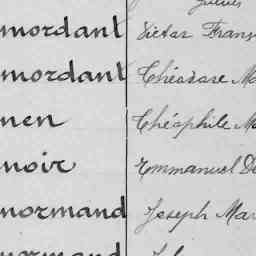 mordant Victor Frans
mordant Théodore Ma
nen Théophile Ma
noir Emmanuel De
normand Joseph Mar
normand